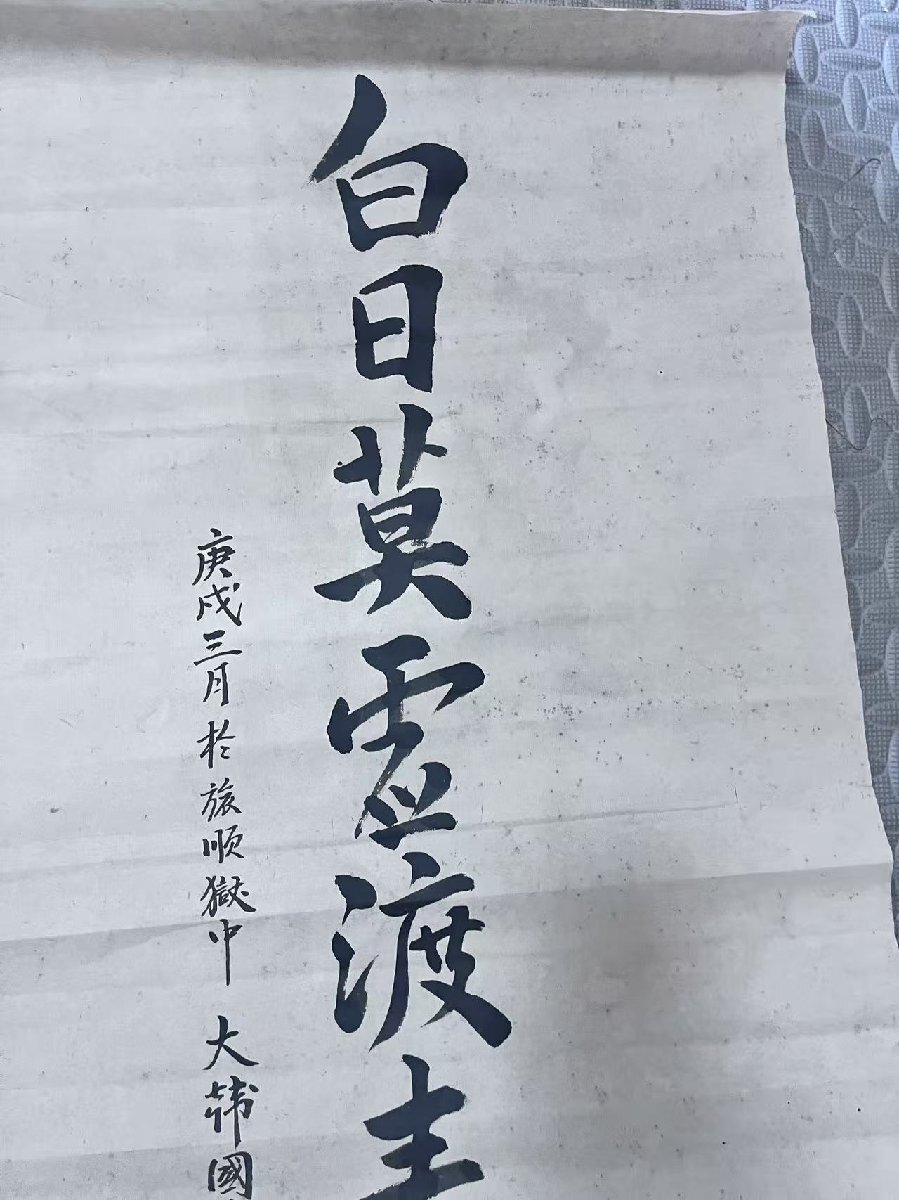 白日莫虛渡
庚戌三月於旅順獄中 大韓國